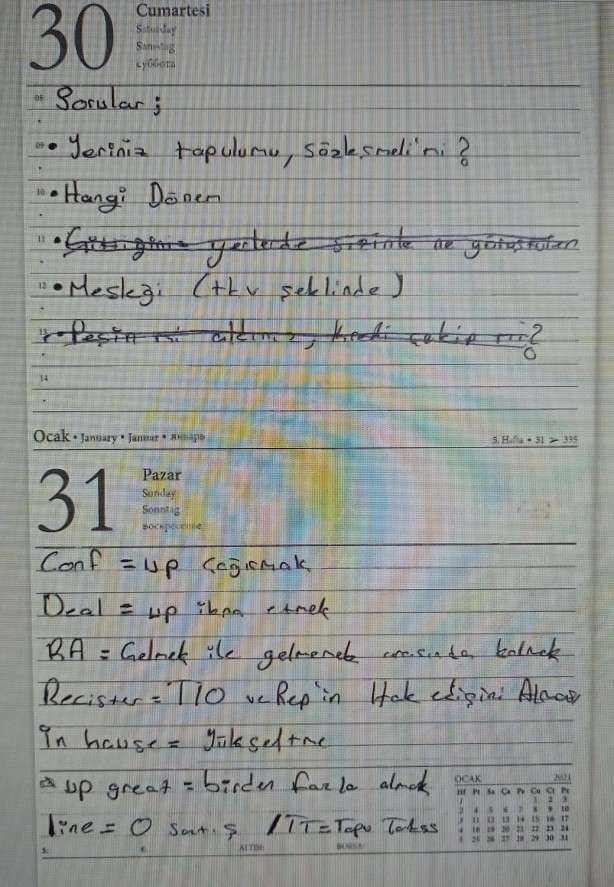 30
Cumartesi
Saturday
Samstag
суббота
08 Sorular ;
09 • Yeriniz tapulumu, sözleşmeli'mi ?
10 • Hangi Dönem
11 • Gittiğiniz yerlerde sizinle ne görüştüler
12 • Mesleği (tkv şeklinde)
13 • Peşin mi aldınız, kredi çekip mi?
14
Ocak • January • Januar • Январь
5. Hafta • 31 > 335
31
Pazar
Sunday
Sonntag
воскресение
Conf = up Çağırmak
Deal = up ikna etmek
BA = Gelmek ile gelmemek arasında kalmak
Recister = TIO ve Rep'in Hak edişini Alması
İn hause = Yükseltme
up great = birden fazla almak
line = 0 Satış / TT = Tapu Takas
OCAK 2021
Hf Pt Sa Ça Pe Cu Ct Pz
1 1 2 3
2 4 5 6 7 8 9 10
3 11 12 13 14 15 16 17
4 18 19 20 21 22 23 24
5 25 26 27 28 29 30 31
$: €: ALTIN: BORSA: